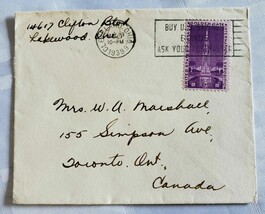 14617 Clifton Blvd
Lakewood Ohio
10-PM
BUY U.S.
ASK YOUR
GOLDEN GATE
Mrs. W. A. Marshall
155 Simpson Ave,
Toronto. Ont.
Canada